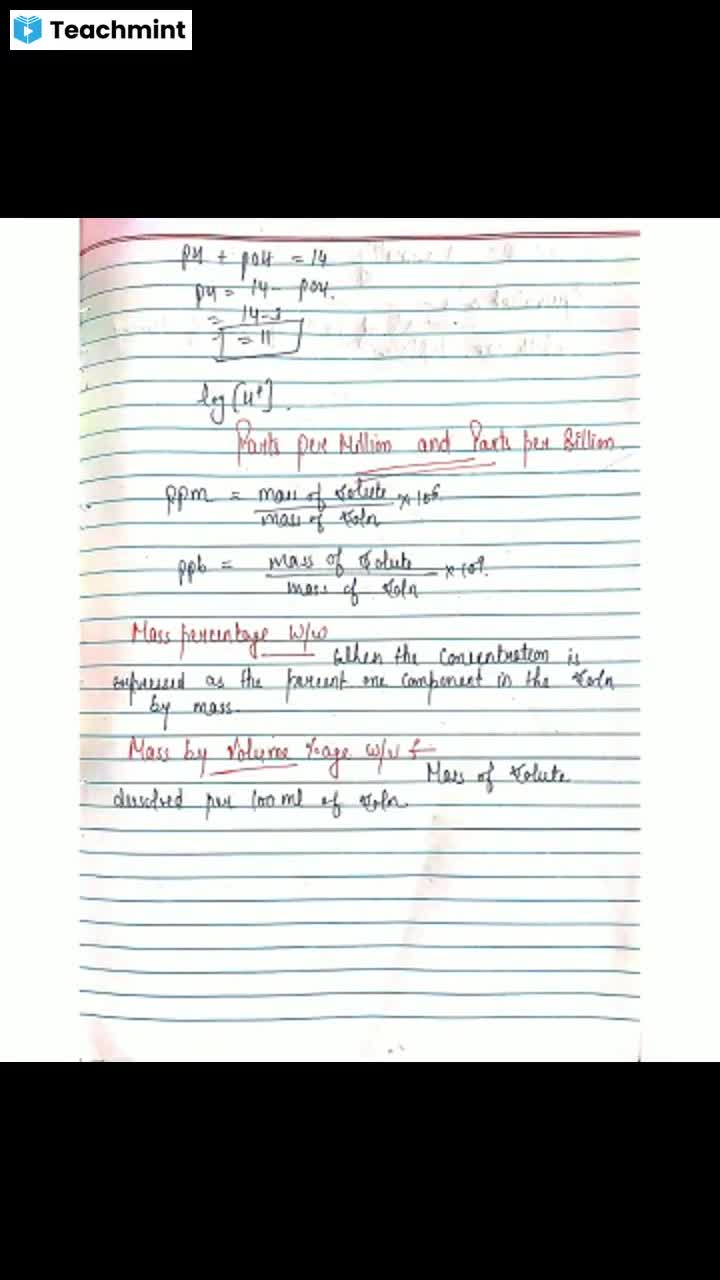 Teachmint
pH + pOH = 14
pH = 14 - pOH.
= 14-3
= 11
log [H+].
Parts per Million and Parts per Billion
ppm = mass of solute / mass of soln × 10⁶
ppb = mass of solute / mass of soln × 10⁹.
Mass percentage w/w
When the concentration is
expressed as the percent one component in the soln
by mass.
Mass by Volume %age w/v :-
Mass of solute
dissolved per 100 ml of soln.